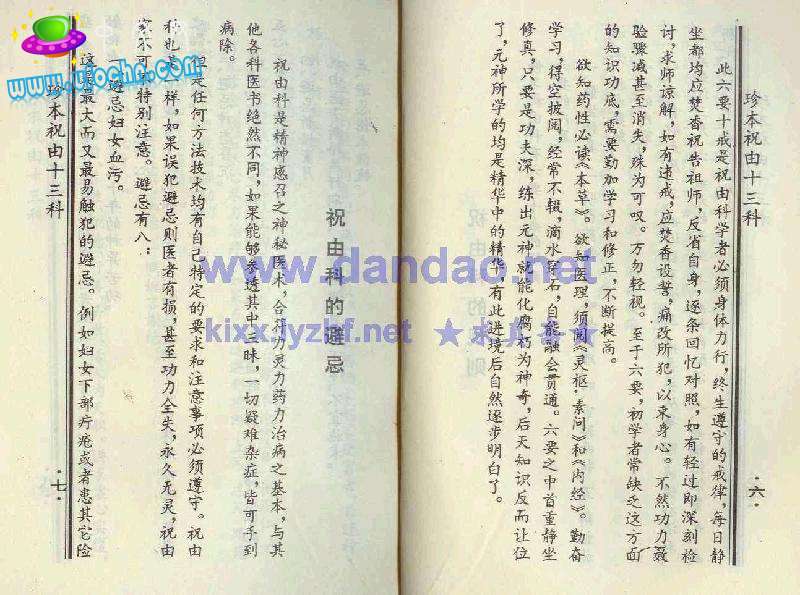 珍本祝由十三科
·六·
此六要十戒是祝由科学者必须身体力行，终生遵守的戒律，每日静
坐都均应焚香祝告祖师，反省自身，逐条回忆对照，如有轻过即深刻检
讨，求师谅解，如有违戒，应焚香设誓，痛改所犯，以束身心。不然功力最
验骤减甚至消失，殊为可叹。万勿轻视。至于六要，初学者常缺乏这方面
的知识功底，需要勤加学习和修正，不断提高。
欲知药性必读《本草》。欲知医理，须阅《灵枢，素问》和《内经》。勤奋
学习，得空披阅，经常不辍，滴水穿石，自能融会贯通。六要之中首重静坐
修真，只要是功夫深，练出元神就能化腐朽为神奇，后天知识反而让位
了，元神所学的均是精华中的精华，有此进境后自然逐步明白了。
祝由科的避忌
祝由科是精神感召之神秘医术，合符力灵力药力治病之基本，与其
他各科医书绝然不同，如果能够参透其中三昧，一切疑难杂症，皆可手到
病除。
但是任何方法技术均有自己特定的要求和注意事项必须遵守。祝由
科也是一样，如果误犯避忌则医者有损，甚至功力全失，永久无灵，祝由
家不可不特别注意。避忌有八：
避忌妇女血污。
这是最大而又最易触犯的避忌。例如妇女下部疔疮或者患其它险
珍本祝由十三科
·七·
www.dandao.net
kixx.lyzkf.net
www.uochn.com